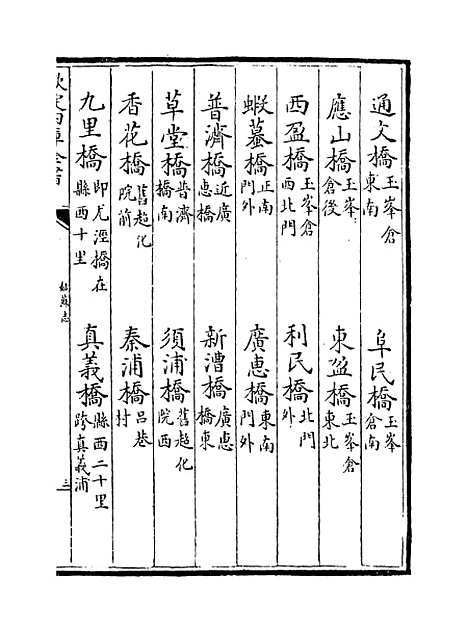 通文橋玉峯倉東南　阜民橋玉峯倉南
應山橋玉峯倉後　東盈橋玉峯倉東北
西盈橋玉峯倉西北門　利民橋北門外
蝦蟇橋正南門外　廣惠橋東南門外
普濟橋近廣惠橋　新漕橋廣惠橋東
草堂橋普濟橋南　須浦橋舊超化院西
香花橋舊超化院前　秦浦橋呂巷村
九里橋即尤涇橋在縣西十里　真義橋縣西二十里跨真義浦
欽定四庫全書
姑蘇志
三